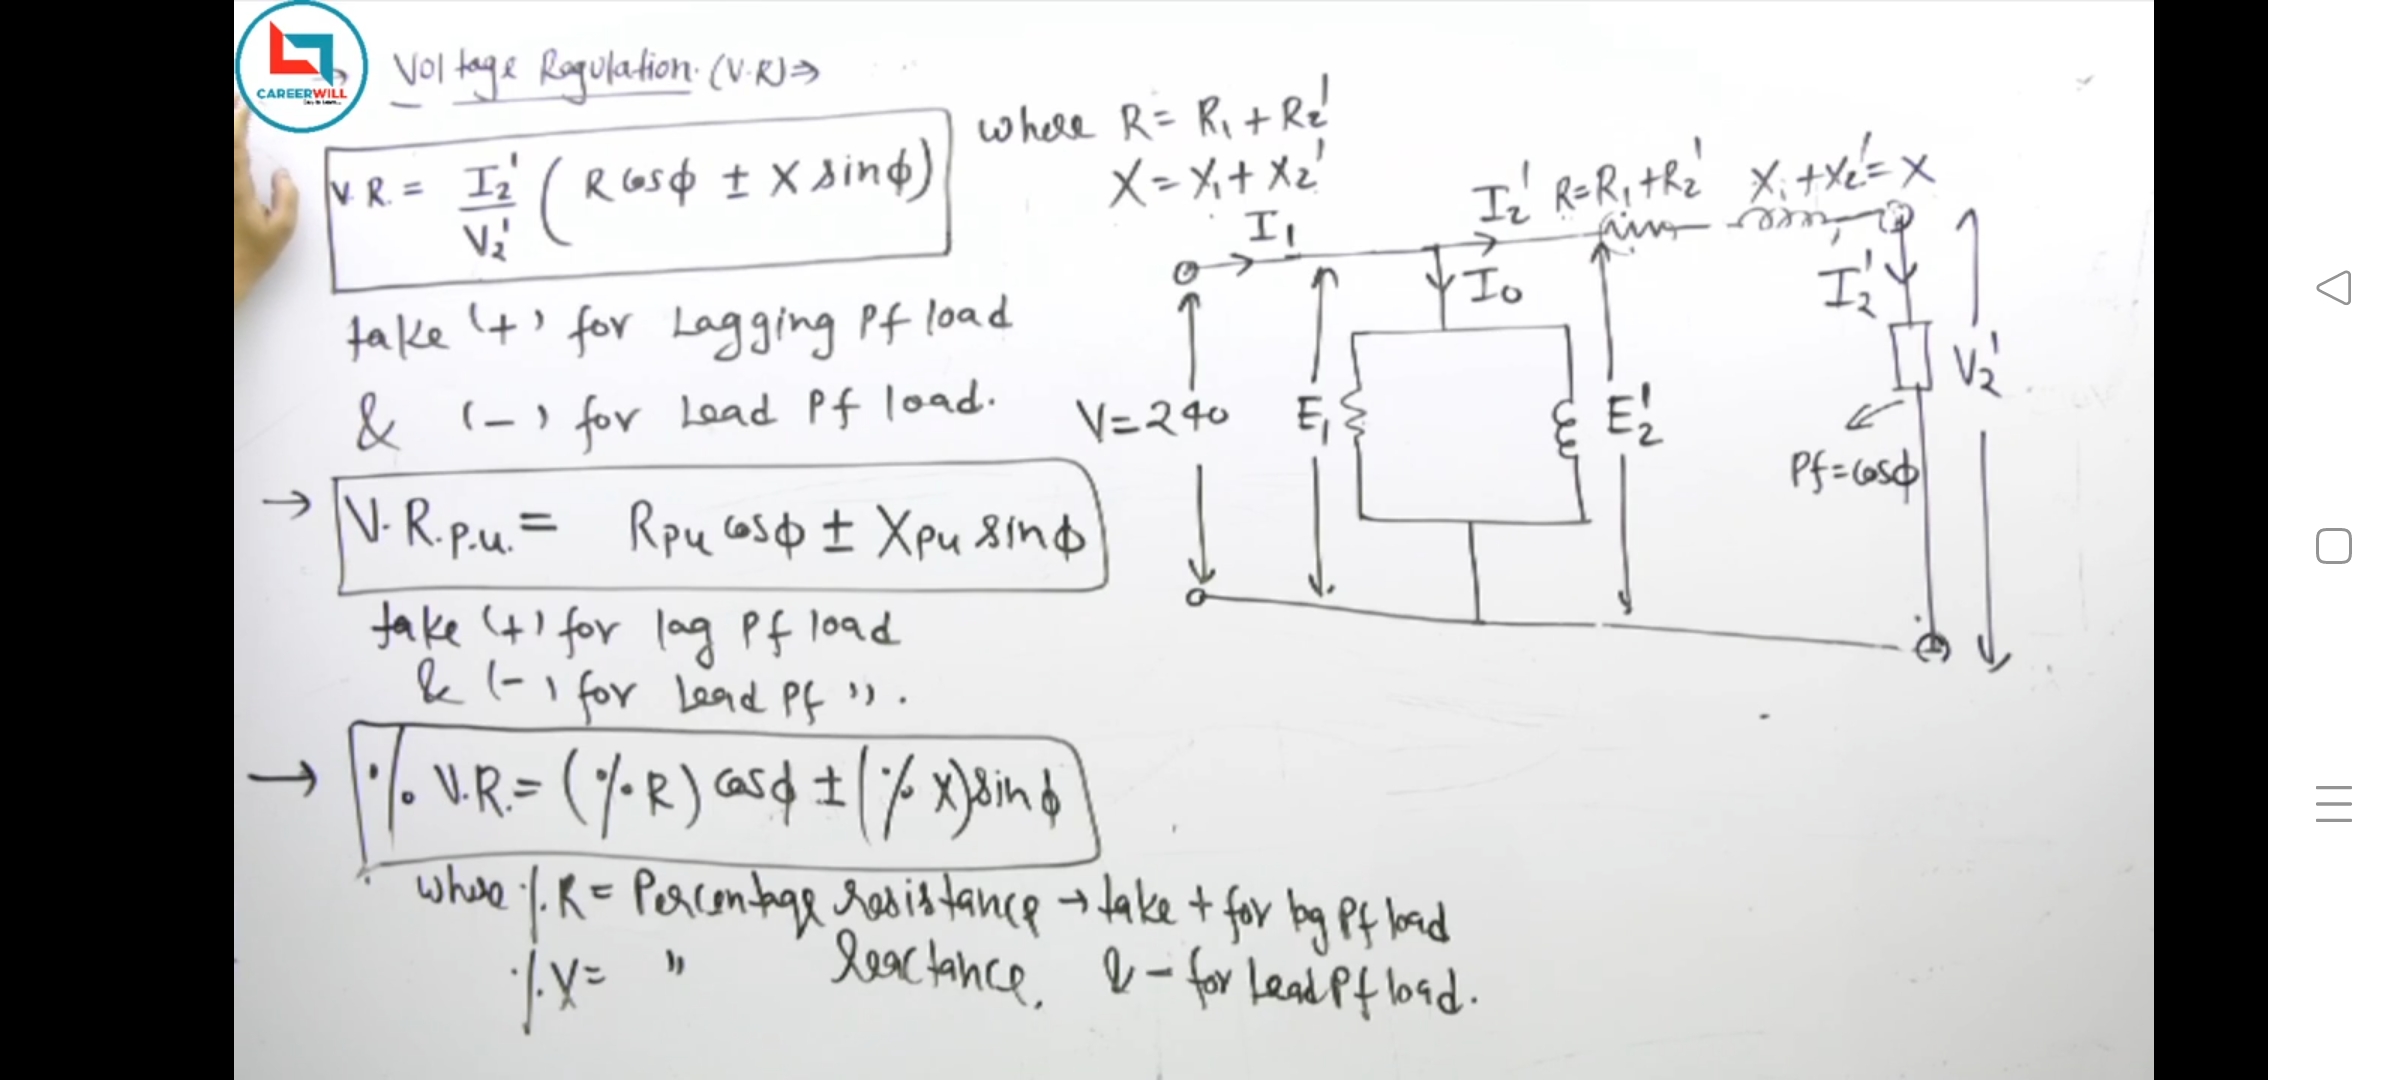 CAREERWILL
→ Voltage Regulation. (V.R) ⇒
V.R. = I₂'/V₂' ( R cosϕ ± X sinϕ )
where R = R₁ + R₂'
X = X₁ + X₂'
take (+) for Lagging Pf load
& (-) for Lead Pf load.
→ V.R.p.u. = Rpu cosϕ ± Xpu sinϕ
take (+) for lag Pf load
& (-) for Lead Pf ".
→ % V.R. = (% R) cosϕ ± (% X) sinϕ
where %R = Percentage resistance → take + for lag Pf load
%X = " Reactance. & - for Lead Pf load.
I₁
I₂' R=R₁+R₂' X₁+X₂'=X
I₀
I₂'
V=240
E₁
E₂'
V₂'
Pf=cosϕ